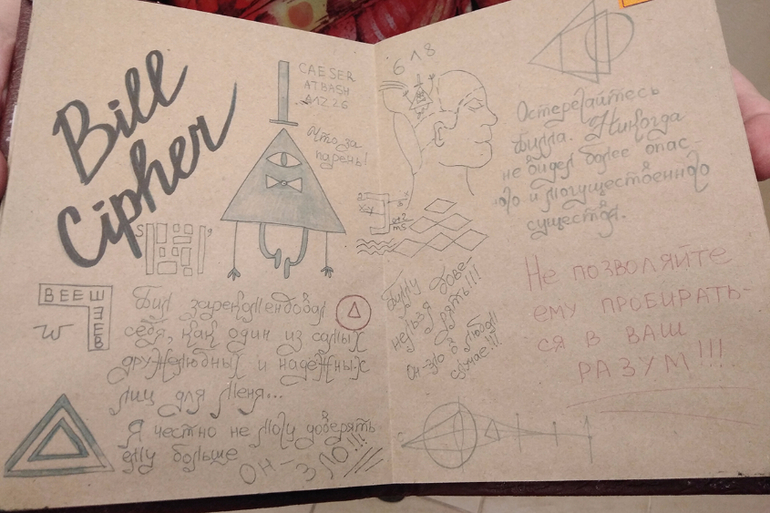 Bill
Cipher
CAESER
ATBASH
A1Z26
Что за
парень!
ВЕЕШ
W
Бил зарекомендовал
себя, как один из самых
дружелюбных и надежных
лиц для меня...
Я честно не могу доверять
ему больше
ОН – ЗЛО!!!
618
Остерегайтесь
билла. Никогда
не видел более опас
ого и могущественного
существа.
Биллу дове-
нельзя рять!!!
Он-зло в любом
случае!!!
Не позволяйте
ему пробирать-
ся в ваш
РАЗУМ!!!